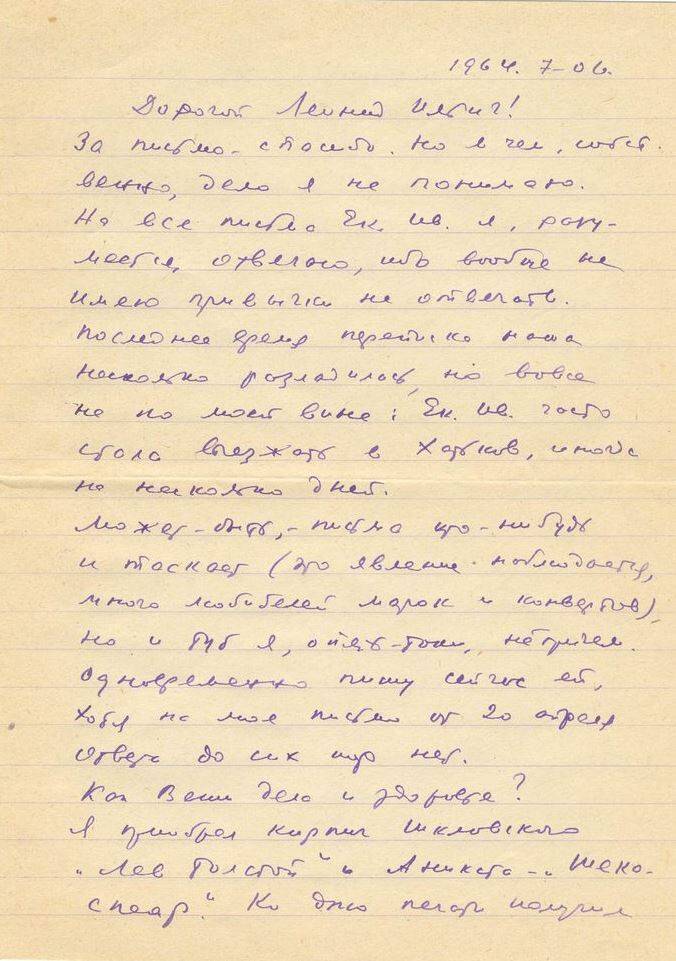 1964. 7-06.
Дорогой Леонид Ильич!
За письмо - спасибо. Но в чем, собст-
венно, дело я не понимаю.
На все письма Ек. Ив. я, разу-
меется, отвечаю, ибо вообще не
имею привычки не отвечать.
Последнее время переписка наша
несколько разладилась, но вовсе
не по моей вине: Ек. Ив. часто
стала выезжать в Харьков, иногда
на несколько дней.
Может-быть, - письма кто-нибудь
и таскает (это явление - наблюдается,
много любителей марок и конвертов),
но и тут я, опять-таки, непричем.
Одновременно пишу сейчас ей,
хотя на мое письмо от 20 апреля
ответа до сих пор нет.
Как Ваши дела и здоровье?
Я приобрел кирпич Шкловского
„Лев Толстой" и Аникста - „Шекс-
спеар". Ко дню печати получил